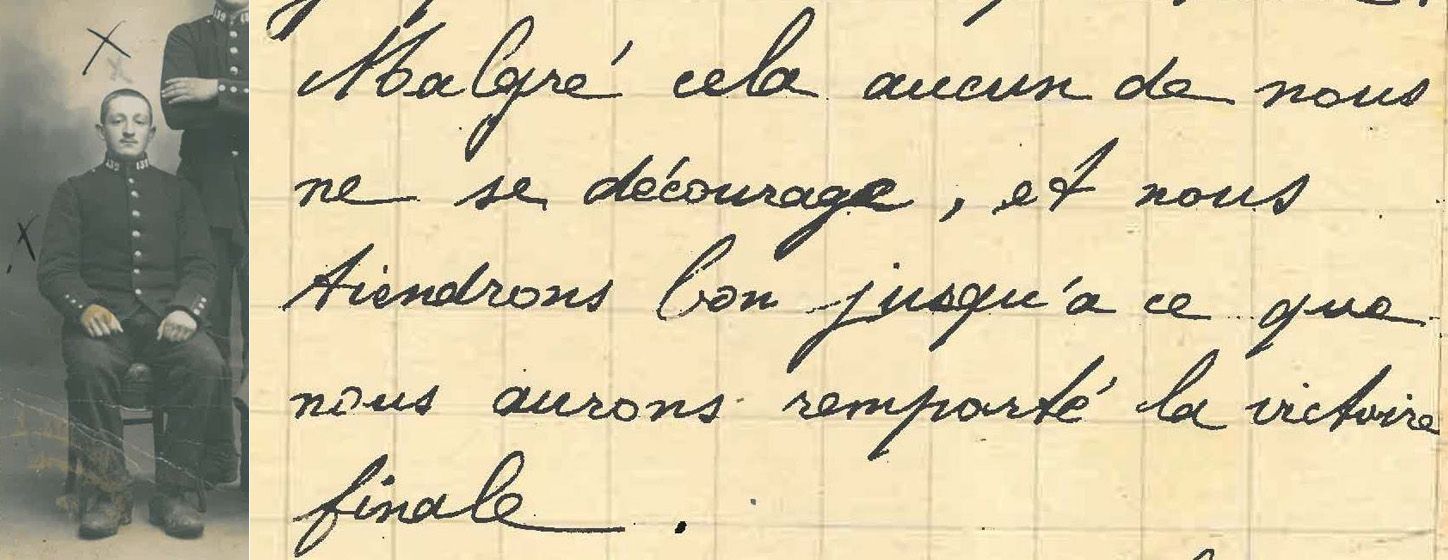 Malgré cela aucun de nous
ne se décourage, et nous
tiendrons bon jusqu'a ce que
nous aurons remporté la victoire
finale.